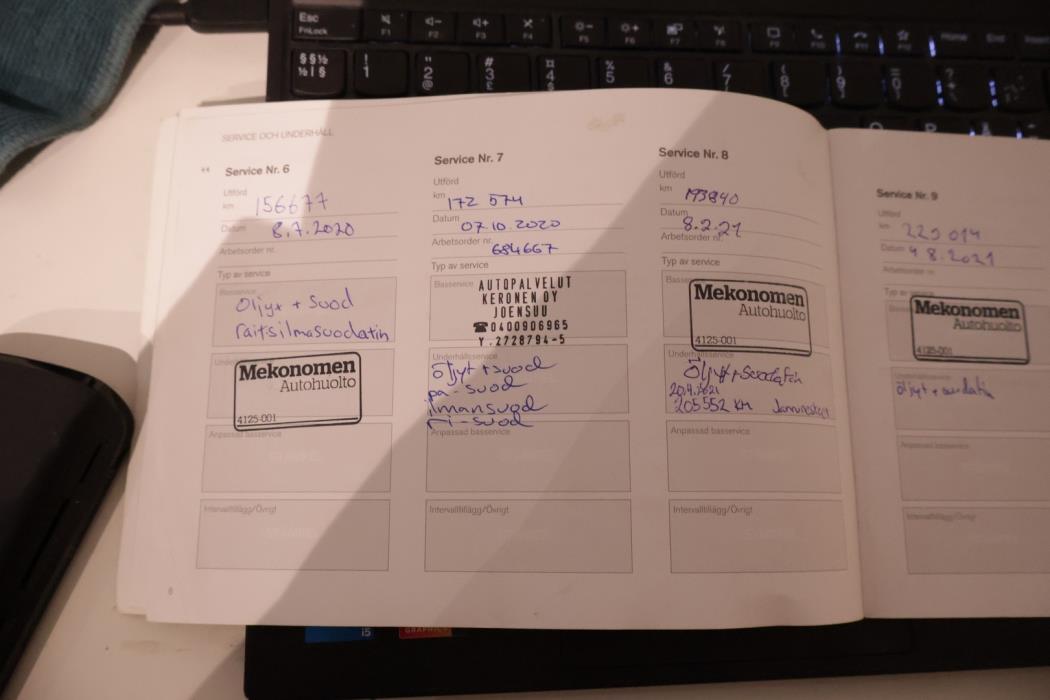 Esc
FnLock
F1
F2
F3
F4
F5
F6
F7
F8
Home
End
Insert
SERVICE OCH UNDERHÅLL
Service Nr. 6
Utförd
km 156677
Datum 8.7.2020
Arbetsorder nr.
Typ av service
Basservice
Öljyt + Suod
raitisilmasuodatin
Mekonomen
Autohuolto
4125-001
Anpassad basservice
Intervalltillägg/Övrigt
8
Service Nr. 7
Utförd
km 172 574
Datum 07.10.2020
Arbetsorder nr. 684667
Typ av service
Basservice
AUTOPALVELUT
KERONEN OY
JOENSUU
☎0400906965
Y.2728794-5
Underhållsservice
öljyt + suod
pa-suod
ilmansuod
ri-suod
Anpassad basservice
Intervalltillägg/Övrigt
Service Nr. 8
Utförd
km 193840
Datum 8.2.21
Arbetsorder nr.
Typ av service
Mekonomen
Autohuolto
4125-001
Underhållsservice
Öljyt + Suodatin
20.4.2021
205552 KM
Anpassad basservice
Intervalltillägg/Övrigt
Service Nr. 9
Utförd
km 229 014
Datum 4 8.2021
Arbetsorder nr
Mekonomen
Autohuolto
4125-001
öljyt + suodatin
Anpassad basservice
Intervalltillägg/Övrigt
i5
GRAPHICS